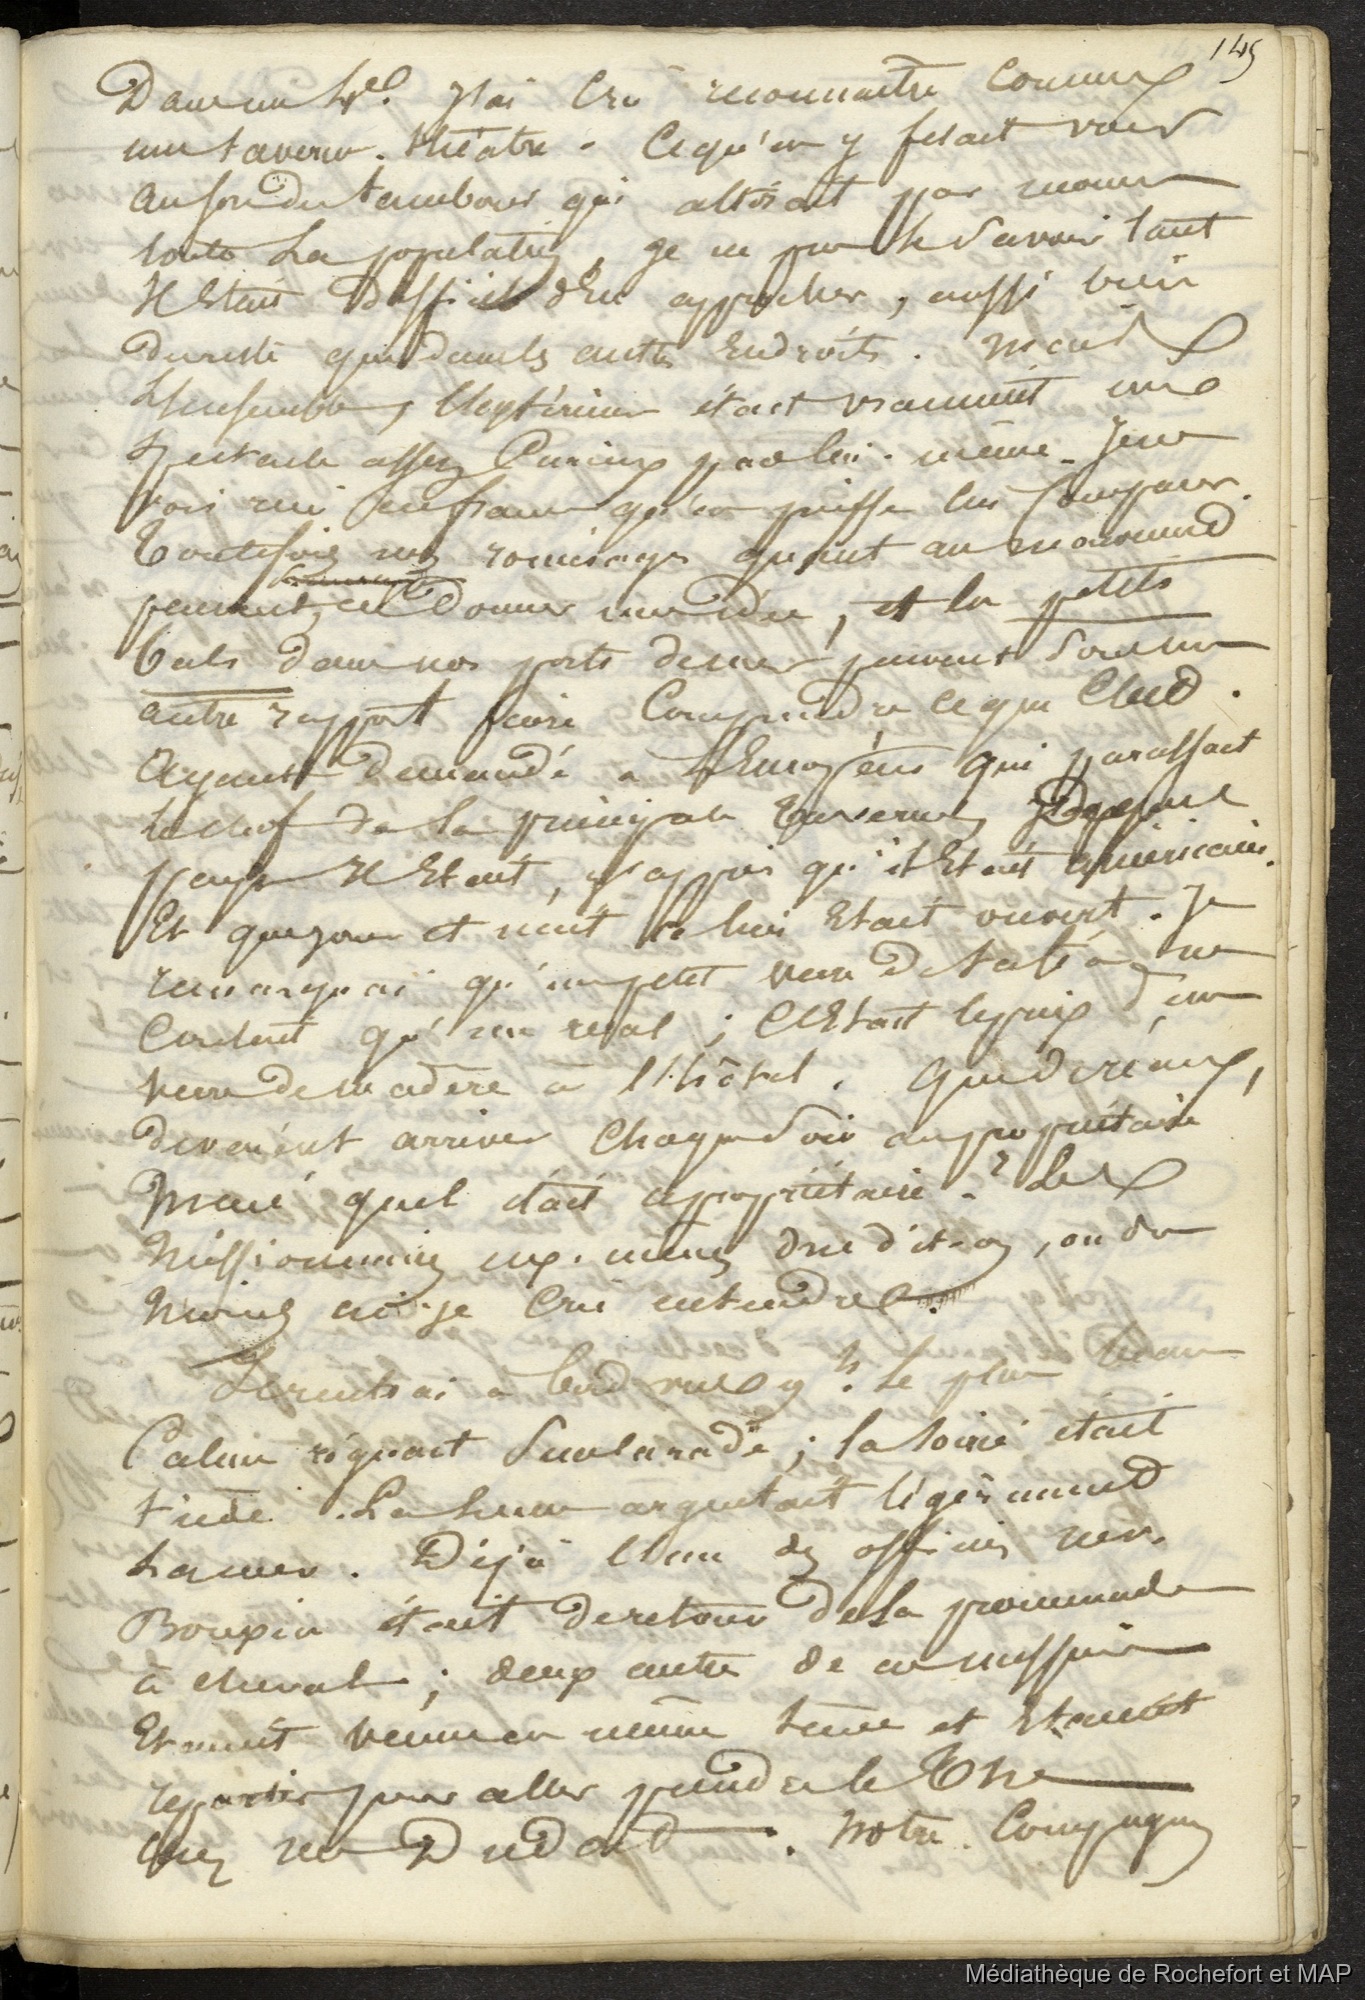 145
Dans un 4e. J'ai crû reconnaître comme
une taverne-théâtre. Ce qu'on y fesait voir
au son du tambour qui attirait par
toute la population, je ne pus le savoir tant
il était difficile d'en approcher, aussi bien
du reste que dans les autres endroits. Mais
l'ensemble, l'extérieur était vraiment un
spectacle assez curieux par lui-même. Je ne
vois rien en france qu'on puisse lui comparer.
Toutefois nos quant au mouvement
peuvent en donner une idée, et les petits
bals dans nos ports de mer peuvent sous un
autre rapport faire comprendre ce que c'est.
Ayant demandé à l'Européen qui paraissait
le chef de la principale taverne, de quel
pays il était, j'appris qu'il était américain.
Et que jour et nuit chez lui était ouvert. Je
remarquai qu'un petit verre de tafia ne
coutait qu'un real ; c'était le prix d'un
verre de madère à l'hôtel. Que de réaux,
devaient arriver chaque soir au propriétaire
Mais quel était ce propriétaire ? Les
Missionnaires eux-mêmes dit-on, ou du
Moins ai-je crû entendre.
Je rentrai à bord vers 9 h. Le plus beau
Calme régnait sur la rade ; la soirée était
tiède. La lune argentait légèrement
la mer. Déjà l'un des officiers Mr.
Boupin était de retour de la promenade
à cheval ; deux autres de ces messieurs
Etaient venus en même tems et Etaient
repartis pour aller prendre le thé
chez Mr Dudoit. Notre Compagnon
Médiathèque de Rochefort et MAP